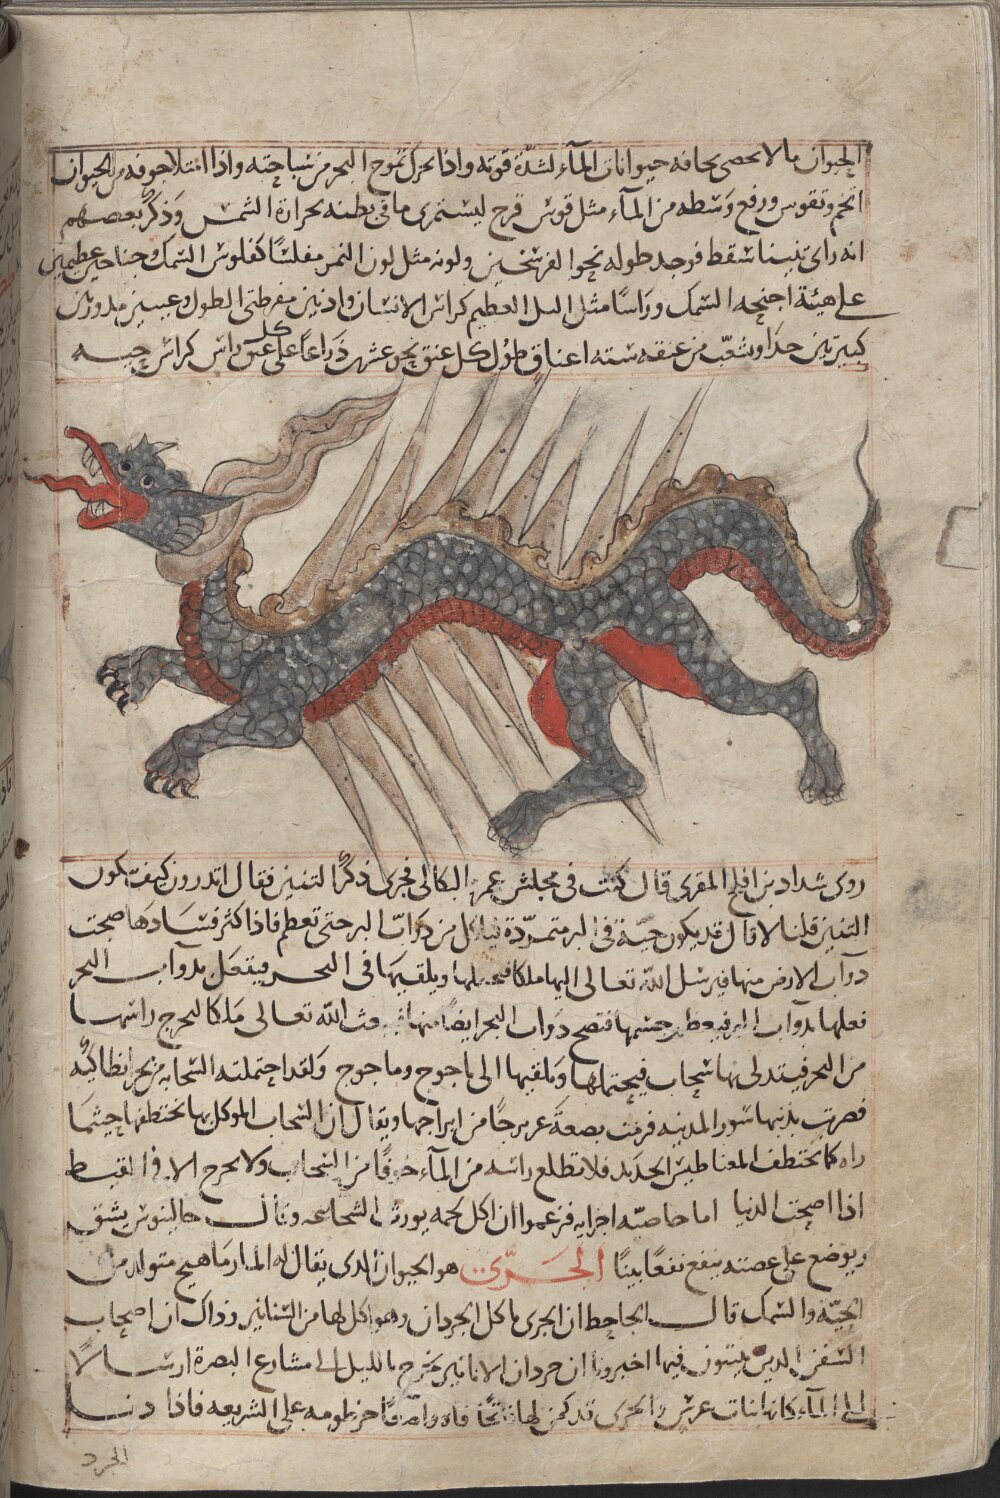 الحيوان ما لا يحصى يخافه حيوانات المآء لشدّة قوته واذا تحرك تموج البحر من سباحته واذا امتلا جوفه من الحيوان
اتخم وتقوس ورفع وسطه من المآء مثل قوس قزح ليستمرى ما فى بطنه بحرارة الشمس وذكر بعضهم
انه راى تنينا سقط فوجد طوله نحوا لفرسخين ولونه مثل لون النمر مفلسا كفلوس السمك وجناحين عظيمين
على هيئة اجنحه السمك وراسا مثل التل العظيم كراس الانسان واذنين مفرطتى الطول وعينين مدورتين
كبيرتين جدا وتشعّب من عنقه سته اعناق طول كل عنق نحو عشرين ذراعا على كل عنق راس كراس حيه
روى شداد بن افلح المقرى قال كنت فى مجلس عمر البكالى فجرى ذكر التنين فقال اتدرون كيف يكون
التنين قلنا لا قال قد يكون حيّة فى البر متمرّدة فياكل من دوابّ البر حتى تعظم فاذا كثر فسادها ضجت
دوآب الارض منها فيرسل الله تعالى اليها ملكا فيحملها ويلقيها فى البحر فيفعل بدوآب البحر
فعلها بدوآب البر فيعظم جسمها فتضج دواب البحر ايضا منها فيبعث الله تعالى ملكا ليخرج راسها
من البحر فيتدلى لها سحاب فيحتملها ويلقيها الى ياجوج وماجوج ولقد احتملته السحابه من بحر انطاكيه
فضربت بذنبها سور المدينه فرمت بضعة عشر برجا من ابراجها ويقال ان السحاب الموكل بها تختطفها حيثما
راه كما يختطف المغناطيس الحديد فلا تطلع راسه من المآء خوفا من السحاب ولا يخرج الا فى القيظ
اذا اصحت الدنيا اما خاصيّه اجزايه فزعموا ان اكل لحمه يورث الشجاعه وقال جالينوس يشق
ويوضع على عضته ينفع نفعا بينا الجرّى هو الحيوان الذى يقال له المارماهيج متولد من
الحيّة والسمك قال الجاحظ ان الجرى ياكل الجرذان وهو اكل لها من السنانير وذاك ان اصحاب
السفن الذين يبيتون فيها اخبرونا ان جرذان الانابير تخرج بالليل الى مشارع البصرة ارسالا
الى المآء كانها بنات عرس والجرى قد كمن لها فاتحا فاه واضعا خرطومه على الشريعه فاذا دنا
الجرذ